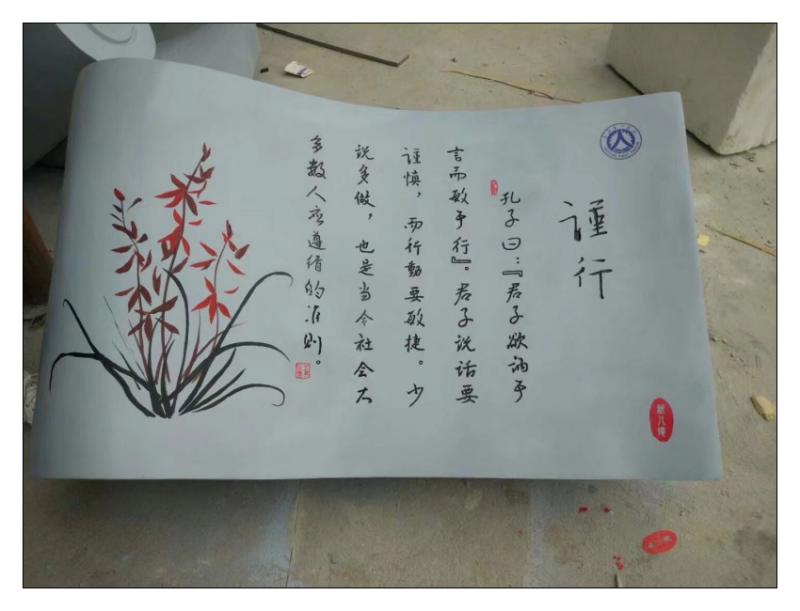 謹行
孔子曰:『君子欲讷于
言而敏于行』。君子说话要
谨慎，而行動要敏捷。少
说多做，也是当今社会大
多数人应遵循的准则。